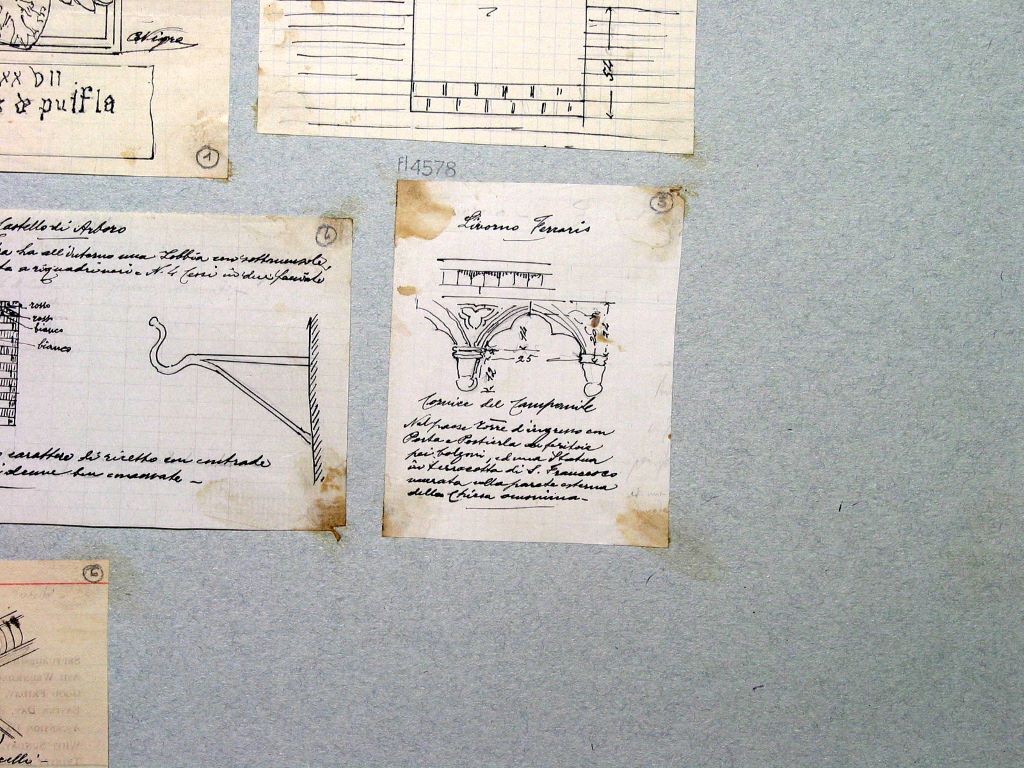 CNigra
xx VII
de puifla
1
52
Fl4578
Castello di Arboro
ha all'interno una Lobbia con sottomensole,
a riquadri neri e N. 4
4
rosso
rosso
bianco
bianco
carattere di ricetto con contrade
ben conservate -
5
Livorno Ferraris
25
20
22
12
Cornice del Campanile
Nel paese Torre d'ingresso con
Porta e Postierla
poi bolzoni, ed una Statua
in terracotta di S. Francesco
murata nella parete esterna
della Chiesa omonima -
6